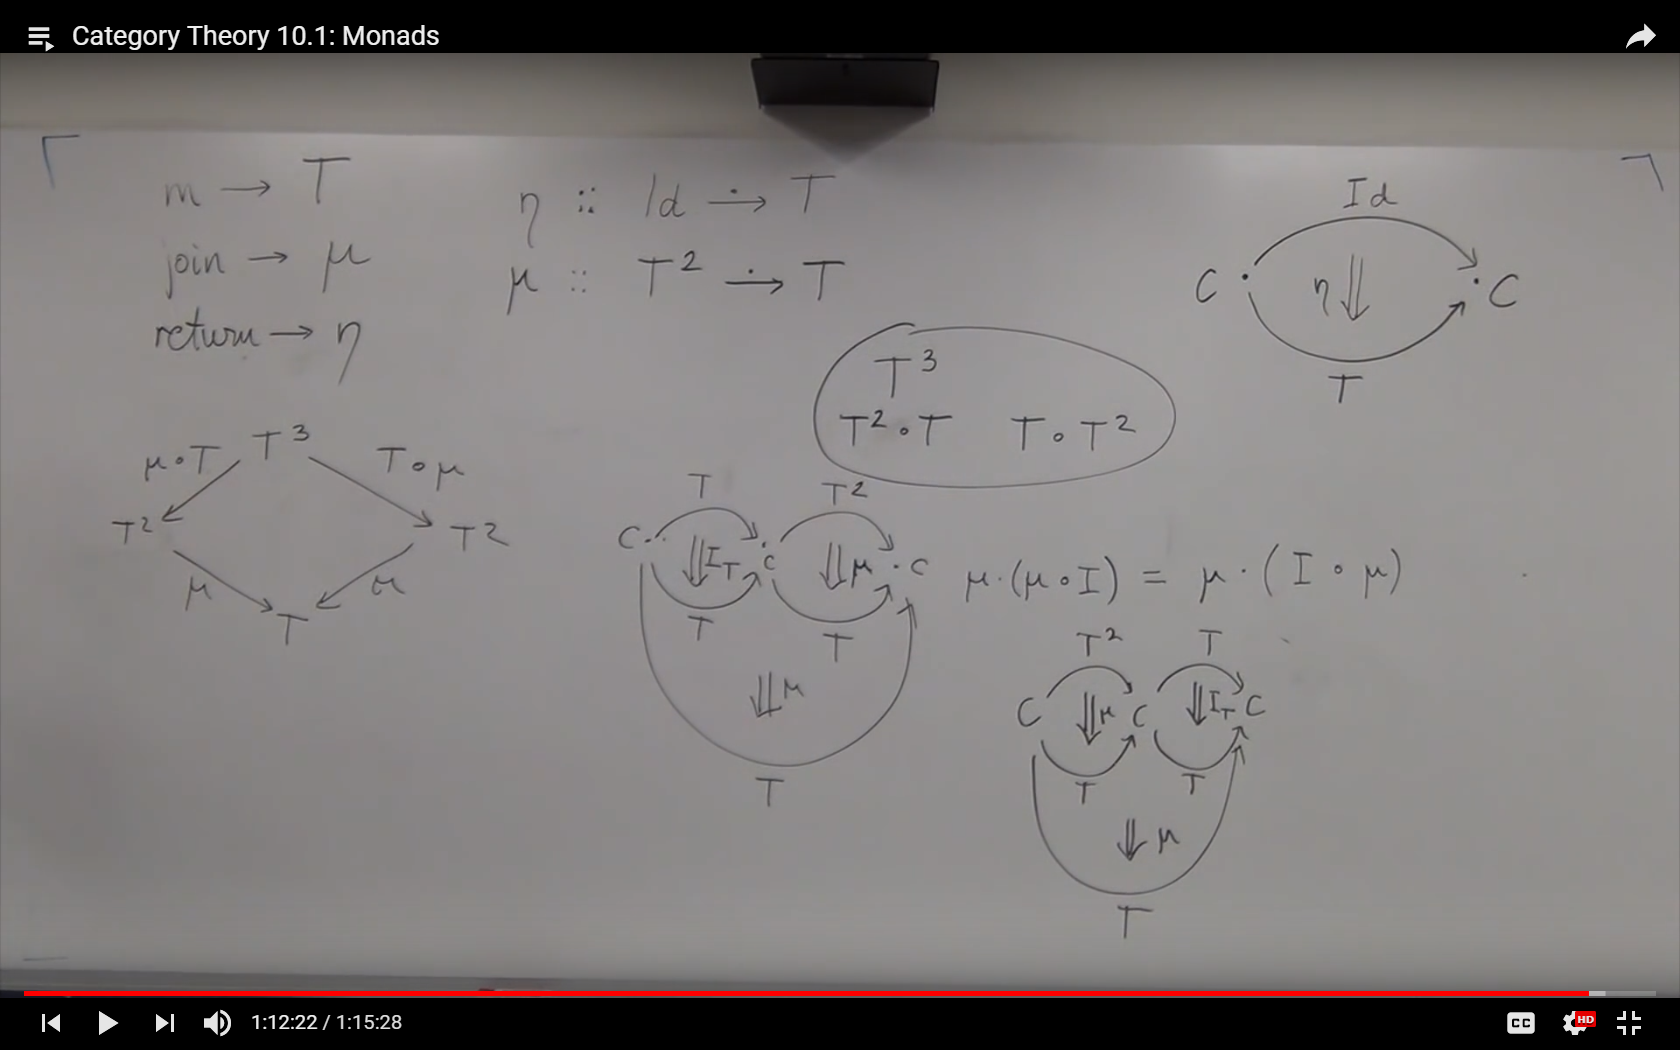 Category Theory 10.1: Monads
m → T
join → μ
return → η
η :: Id ⸱→ T
μ :: T² ⸱→ T
Id
C · η ⇓ · C
T
T³
T² ∘ T T ∘ T²
T³
μ∘T T∘μ
T² T²
μ μ
T
T T²
C · ⇓ I_T C ⇓ μ · C
T T
⇓ μ
T
μ·(μ∘I) = μ·(I∘μ)
T² T
C ⇓ μ C ⇓ I_T C
T T
⇓ μ
T
1:12:22 / 1:15:28
CC
HD